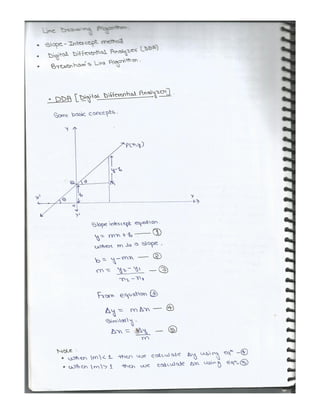 Line Drawing Algorithm.
• Slope-Intercept method
• Digital Differential Analyzer (DDA)
• Bresenham's Line Algorithm.
• DDA [Digital Differential Analyzer]
Some basic concepts.
Y
P(x,y)
y-b
B θ
A
b
θ
X' X
Y'
Slope intercept equation.
y = mx + b — ①
where m is a slope.
b = y - mx — ②
m = y₂-y₁ / x₂-x₁ — ③
From equation ③
Δy = mΔx — ④
Similarly.
Δx = Δy / m — ⑤
Note:
• When |m| < 1 then we calculate Δy using eqⁿ -④
• When |m| > 1 then we calculate Δx using eqⁿ.⑤